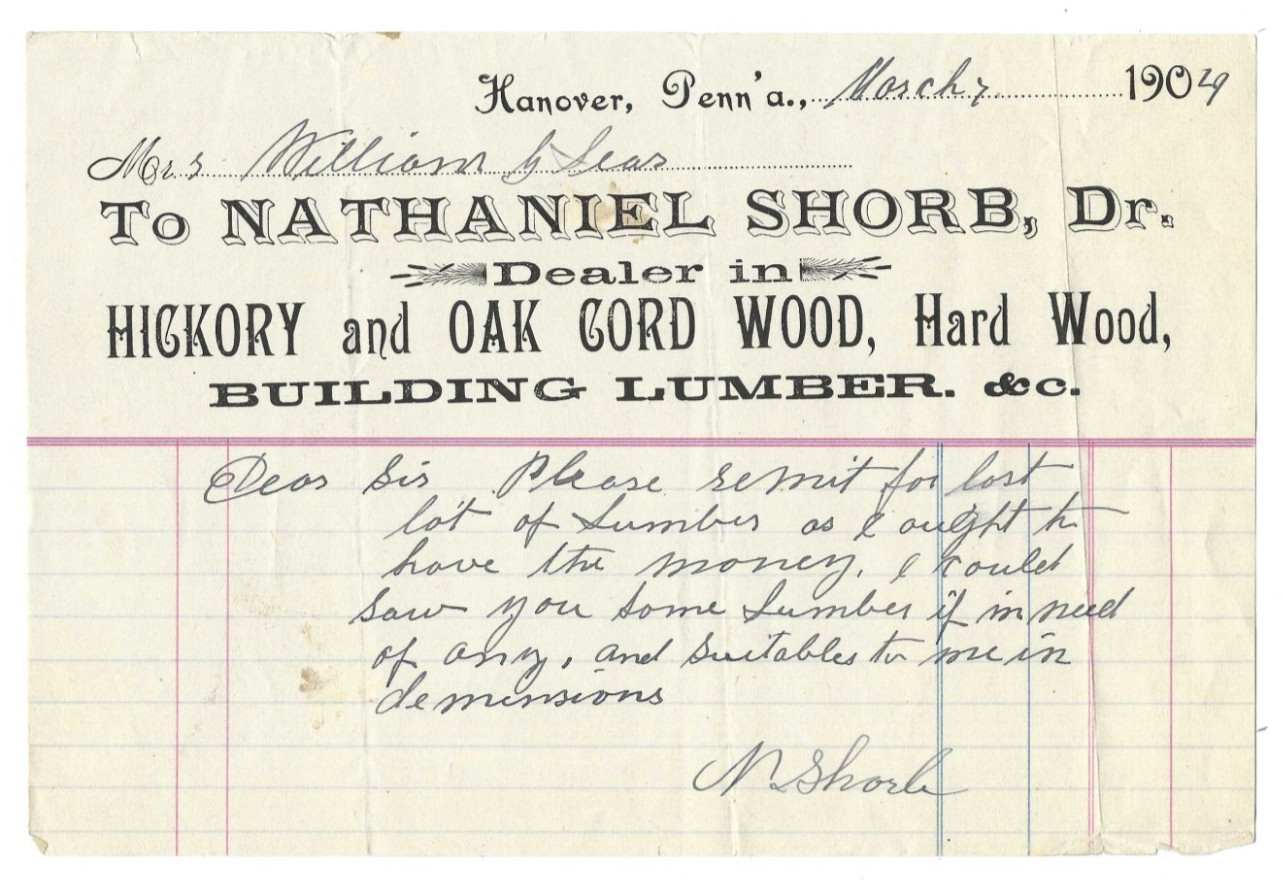 Hanover, Penn'a., March 7 1904
Mrs William G Sear
To NATHANIEL SHORB, Dr.
Dealer in
HICKORY and OAK CORD WOOD, Hard Wood,
BUILDING LUMBER. &c.
Dear Sir Please remit for last
lot of Lumber as I ought to
have the money. I could
saw you some Lumber if in need
of any, and suitables to me in
demensions
N Shorb